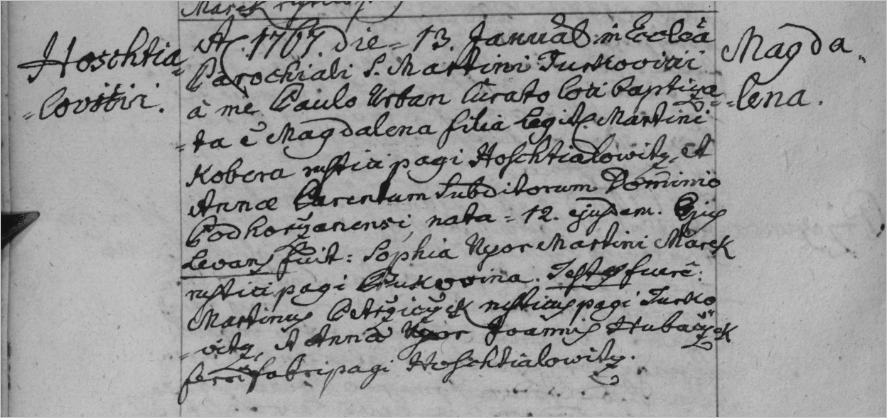 Marek
Hoschtia-
-lovitii.
A. 1767. die = 13. Januar in Ecclâ
Parochiali S. Martini Turkovicii
â mê Paulo Urban Curato Loci baptiza-
-ta ê Magdalena filia legit. Martini
Kobera rustici pagi Hoschtialowitz, et
Annæ Parentum Subditorum Dominio
Podhorzanensi, nata = 12. ejusdem. Ejus
Levans fuit: Sophia Uxor Martini Marek
rustici pagi Bukovina. Testes fuerê:
Martinus rusticus pagi Turko-
-vitz, et Anna Uxor Joannis
ferri fabri pagi Hoschtialowitz.
Magda-
-lena.